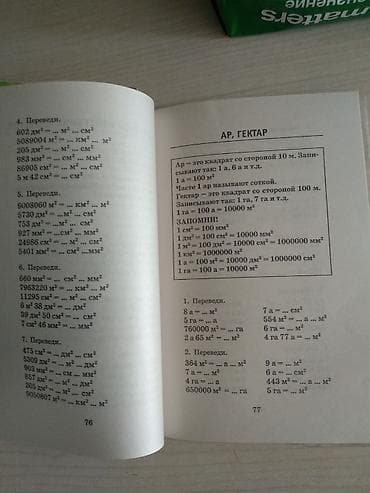 matters
значение
4. Переведи.
602 дм² = ... м² ... см²
5089004 м² = ... км² ... м²
205 дм² = ... см²
983 мм² = ... см² ... мм²
86905 см² = ... м² ... см²
5 м 42 см² = ... см²
5. Переведи.
6008060 м² = ... км² ... м²
5730 дм² = ... м² ... дм²
753 дм² = ... м² ... дм²
927 мм² = ... см² ... мм²
24986 см² = ... м² ... см²
5401 м² = ... см² ... мм²
6. Переведи.
660 мм² = ... см² ... мм²
7963220 м² = ... км² ... м²
11295 см² = ... м² ... см²
6 м² 38 дм² = ... дм²
39 дм² 50 см² = ... см²
7 см² 46 мм² = ... мм²
7. Переведи.
475 см² = ... дм² ... см²
5309 дм² = ... м² ... дм²
903 мм² = ... см ... мм²
857 дм² = ... м² ... дм²
205 дм² = ... м² ... см²
9050807 м² = ... км² ... м²
76
АР, ГЕКТАР
Ар – это квадрат со стороной 10 м. Запи-
сывают так: 1 а, 6 а и т.д.
1 а = 100 м²
Часто 1 ар называют соткой.
Гектар – это квадрат со стороной 100 м.
Записывают так: 1 га, 7 га и т.д.
1 га = 100 а = 10000 м²
ЗАПОМНИ!
1 см² = 100 мм²
1 дм² = 100 см² = 10000 мм²
1 м² = 100 дм² = 10000 см² = 1000000 мм²
1 км² = 1000000 м²
1 а = 100 м² = 10000 дм² = 1000000 см²
1 га = 100 а = 10000 м²
1. Переведи.
8 а = ... м²
5 га = ... а
760000 м² = ... га
2 а 65 м² = ... м²
7 а = ... см²
554 м² = ... а ... м²
6 га = ... м²
4 га 77 а = ... м²
2. Переведи.
364 м² = ... а ... м²
7 а = ... м²
4 га = ... а
650000 м² = ... га
9 а = ... м²
6 а = ... см²
443 м² = ... а ... м²
5 га = ... м²
77